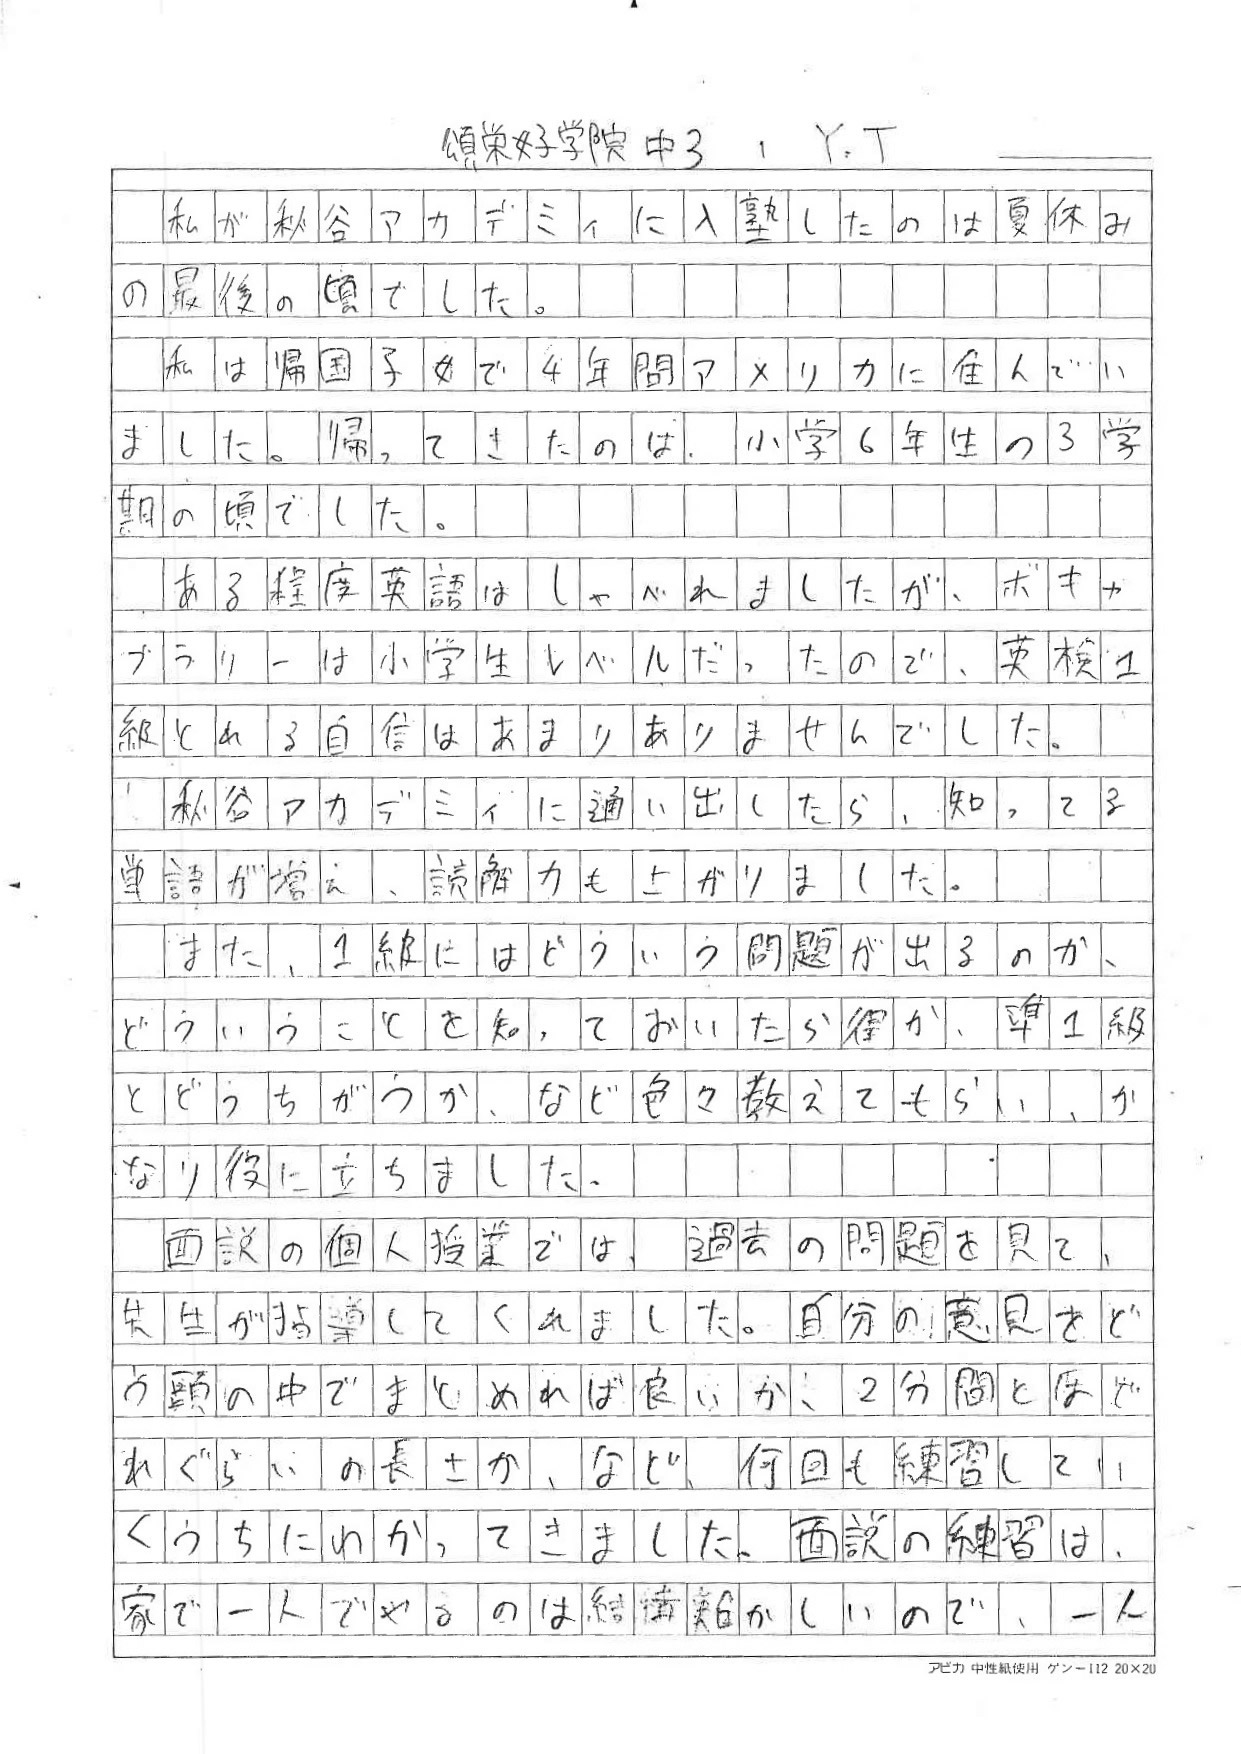 頌栄女子学院 中3 Y.T
私が秋谷アカデミィに入塾したのは夏休み
の最後の頃でした。
私は帰国子女で4年間アメリカに住んでい
ました。帰ってきたのは、小学6年生の3学
期の頃でした。
ある程度英語はしゃべれましたが、ボキャ
ブラリーは小学生レベルだったので、英検1
級とれる自信はあまりありませんでした。
秋谷アカデミィに通い出したら、知ってる
単語が増え、読解力も上がりました。
また、1級にはどういう問題が出るのか、
どういうことを知っておいたら得か、準1級
とどうちがうか、など色々教えてもらい、か
なり役に立ちました。
面説の個人授業では、過去の問題を見て、
先生が指導してくれました。自分の意見をど
う頭の中でまとめれば良いか、2分間とはど
れぐらいの長さか、など、何回も練習してい
くうちにわかってきました。面説の練習は、
家で一人でやるのは結構難かしいので、一人
アピカ 中性紙使用 ゲンー112 20×20